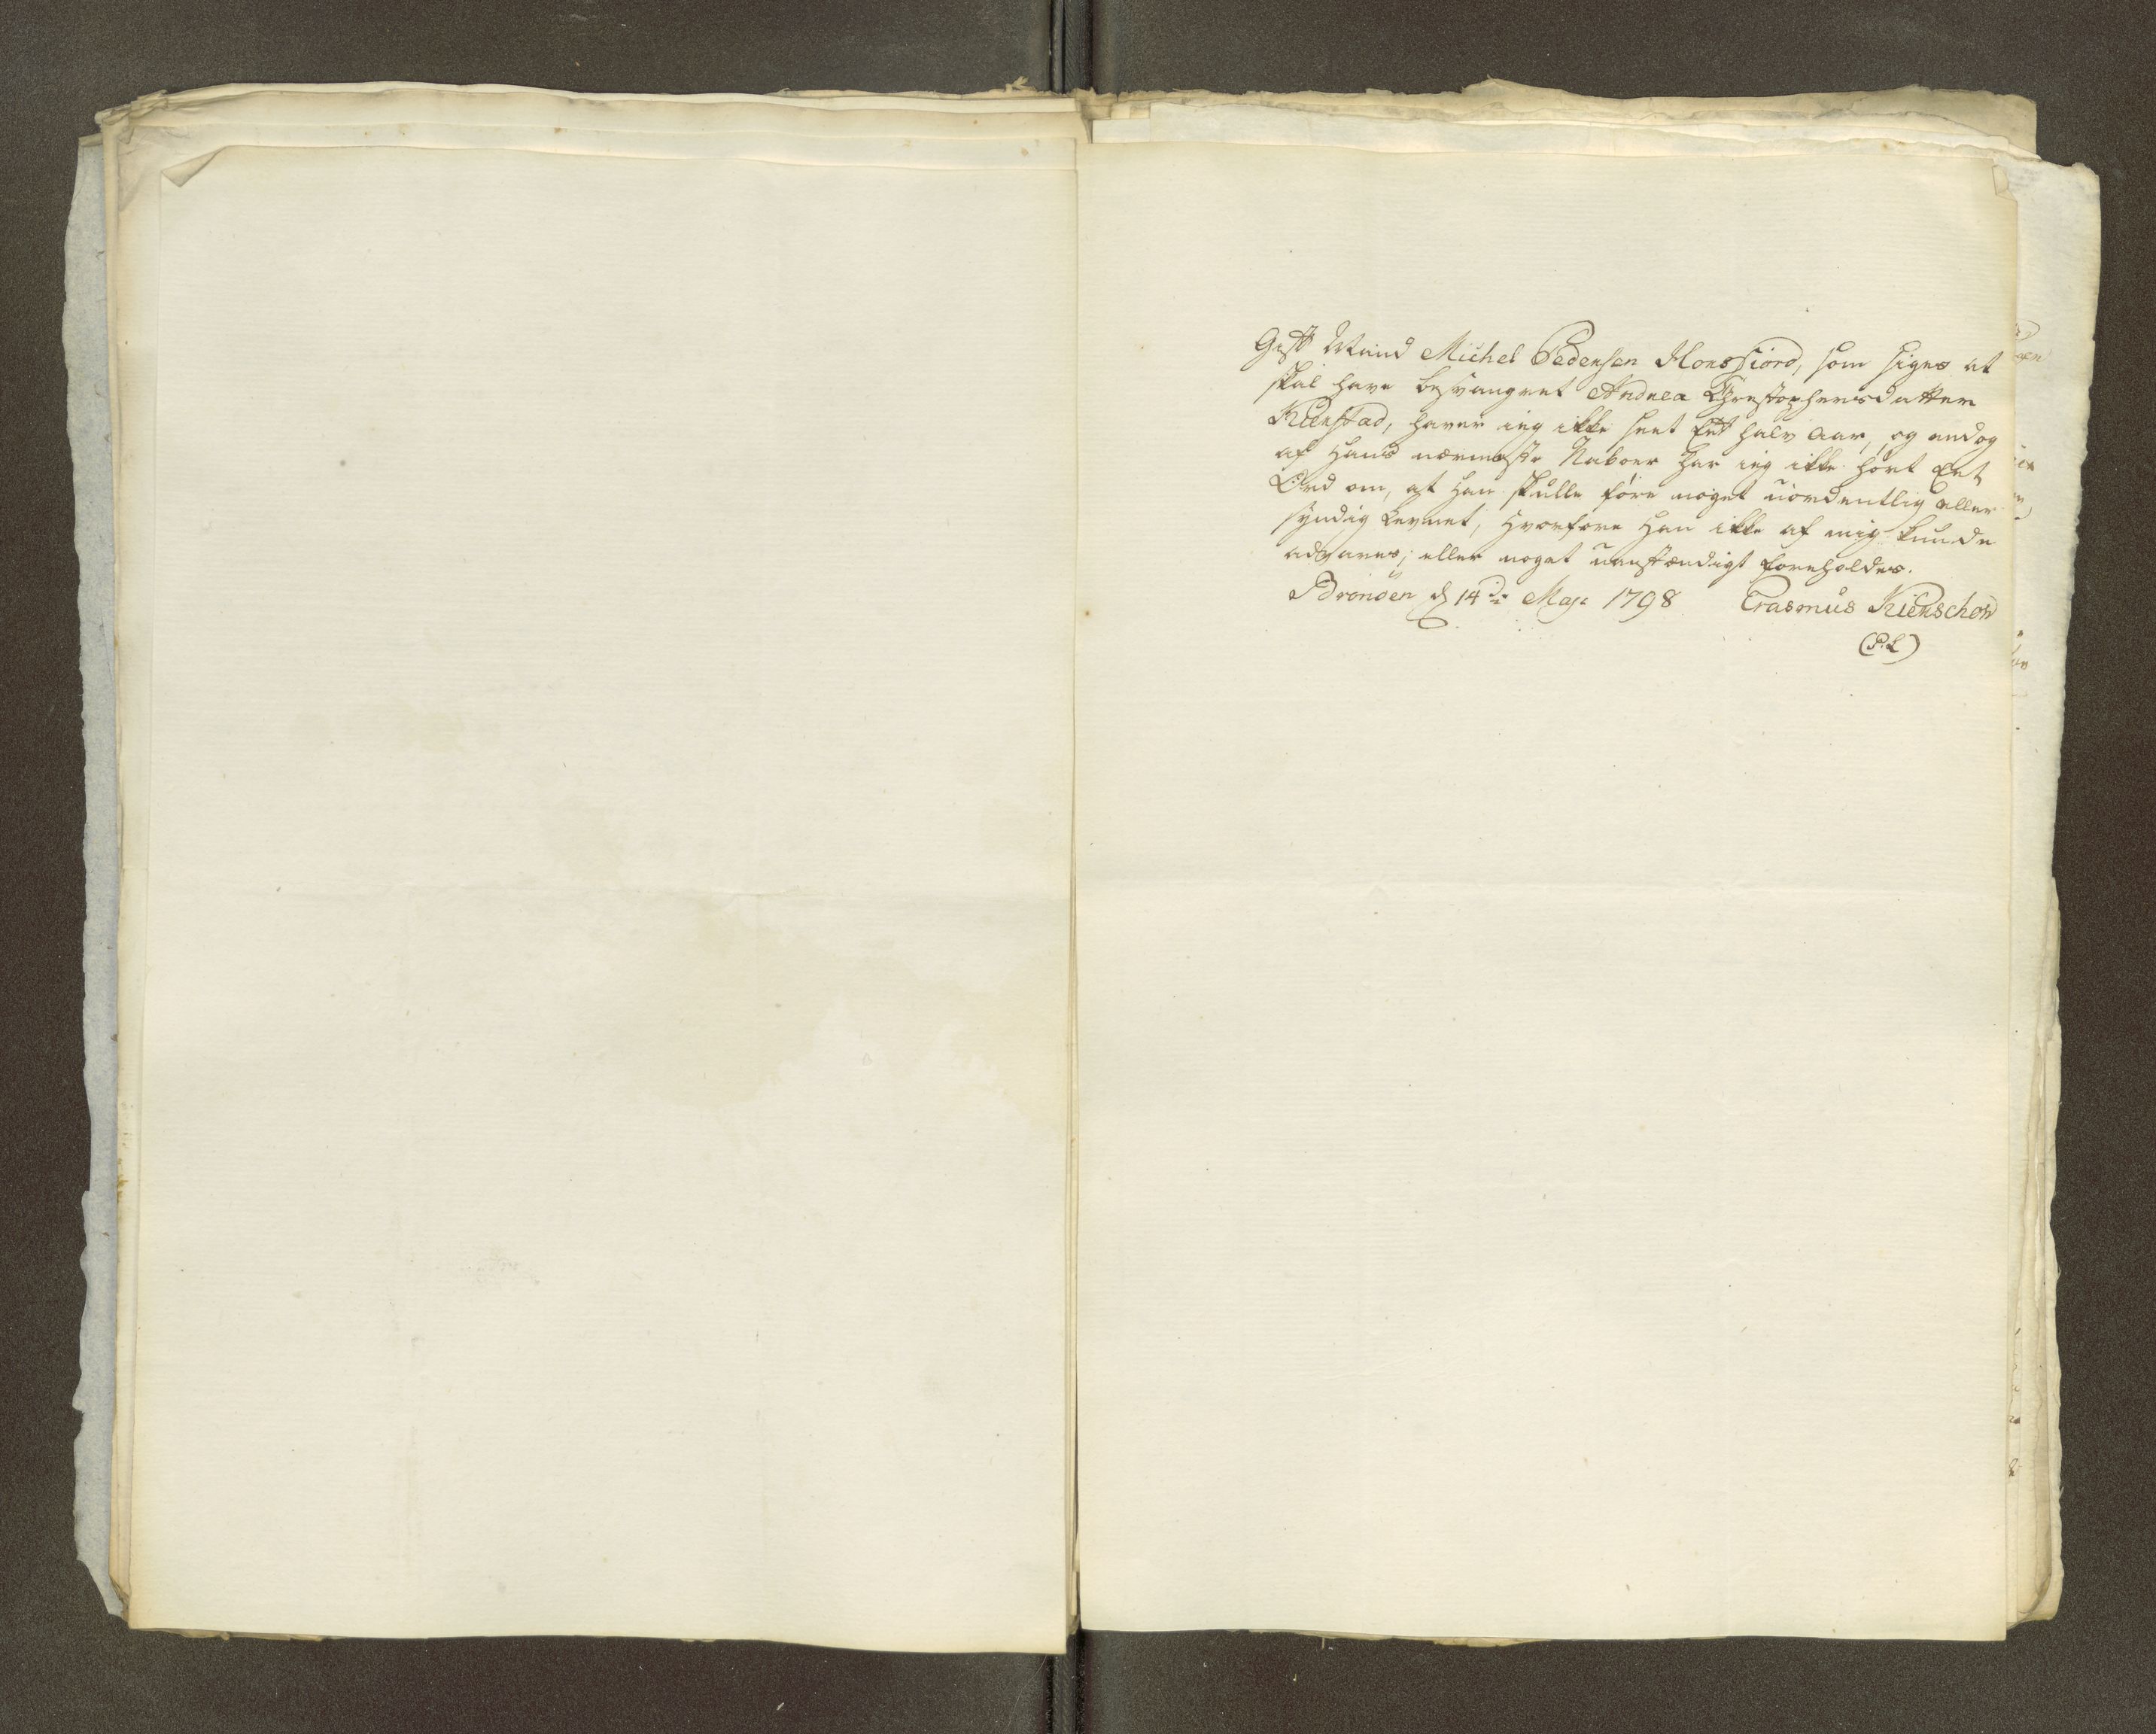 Gift Mand Michel Pedersen Horsfiord, som siges at
skal have besvangret Andrea Christophersdatter
Rienstad, haver ieg ikke seet Eet halv Aar, og endog
af Hans nærmeste Naboer har ieg ikke hørt Eet
Ord om, at Han skulle føre noget uordentlig eller
syndig Levnet, Hvorfore Han ikke af mig kunde
advares; eller noget uanstændigt foreholdes.
Brönöen d 14de Maji 1798 Erasmus Kienschow
(P.L)